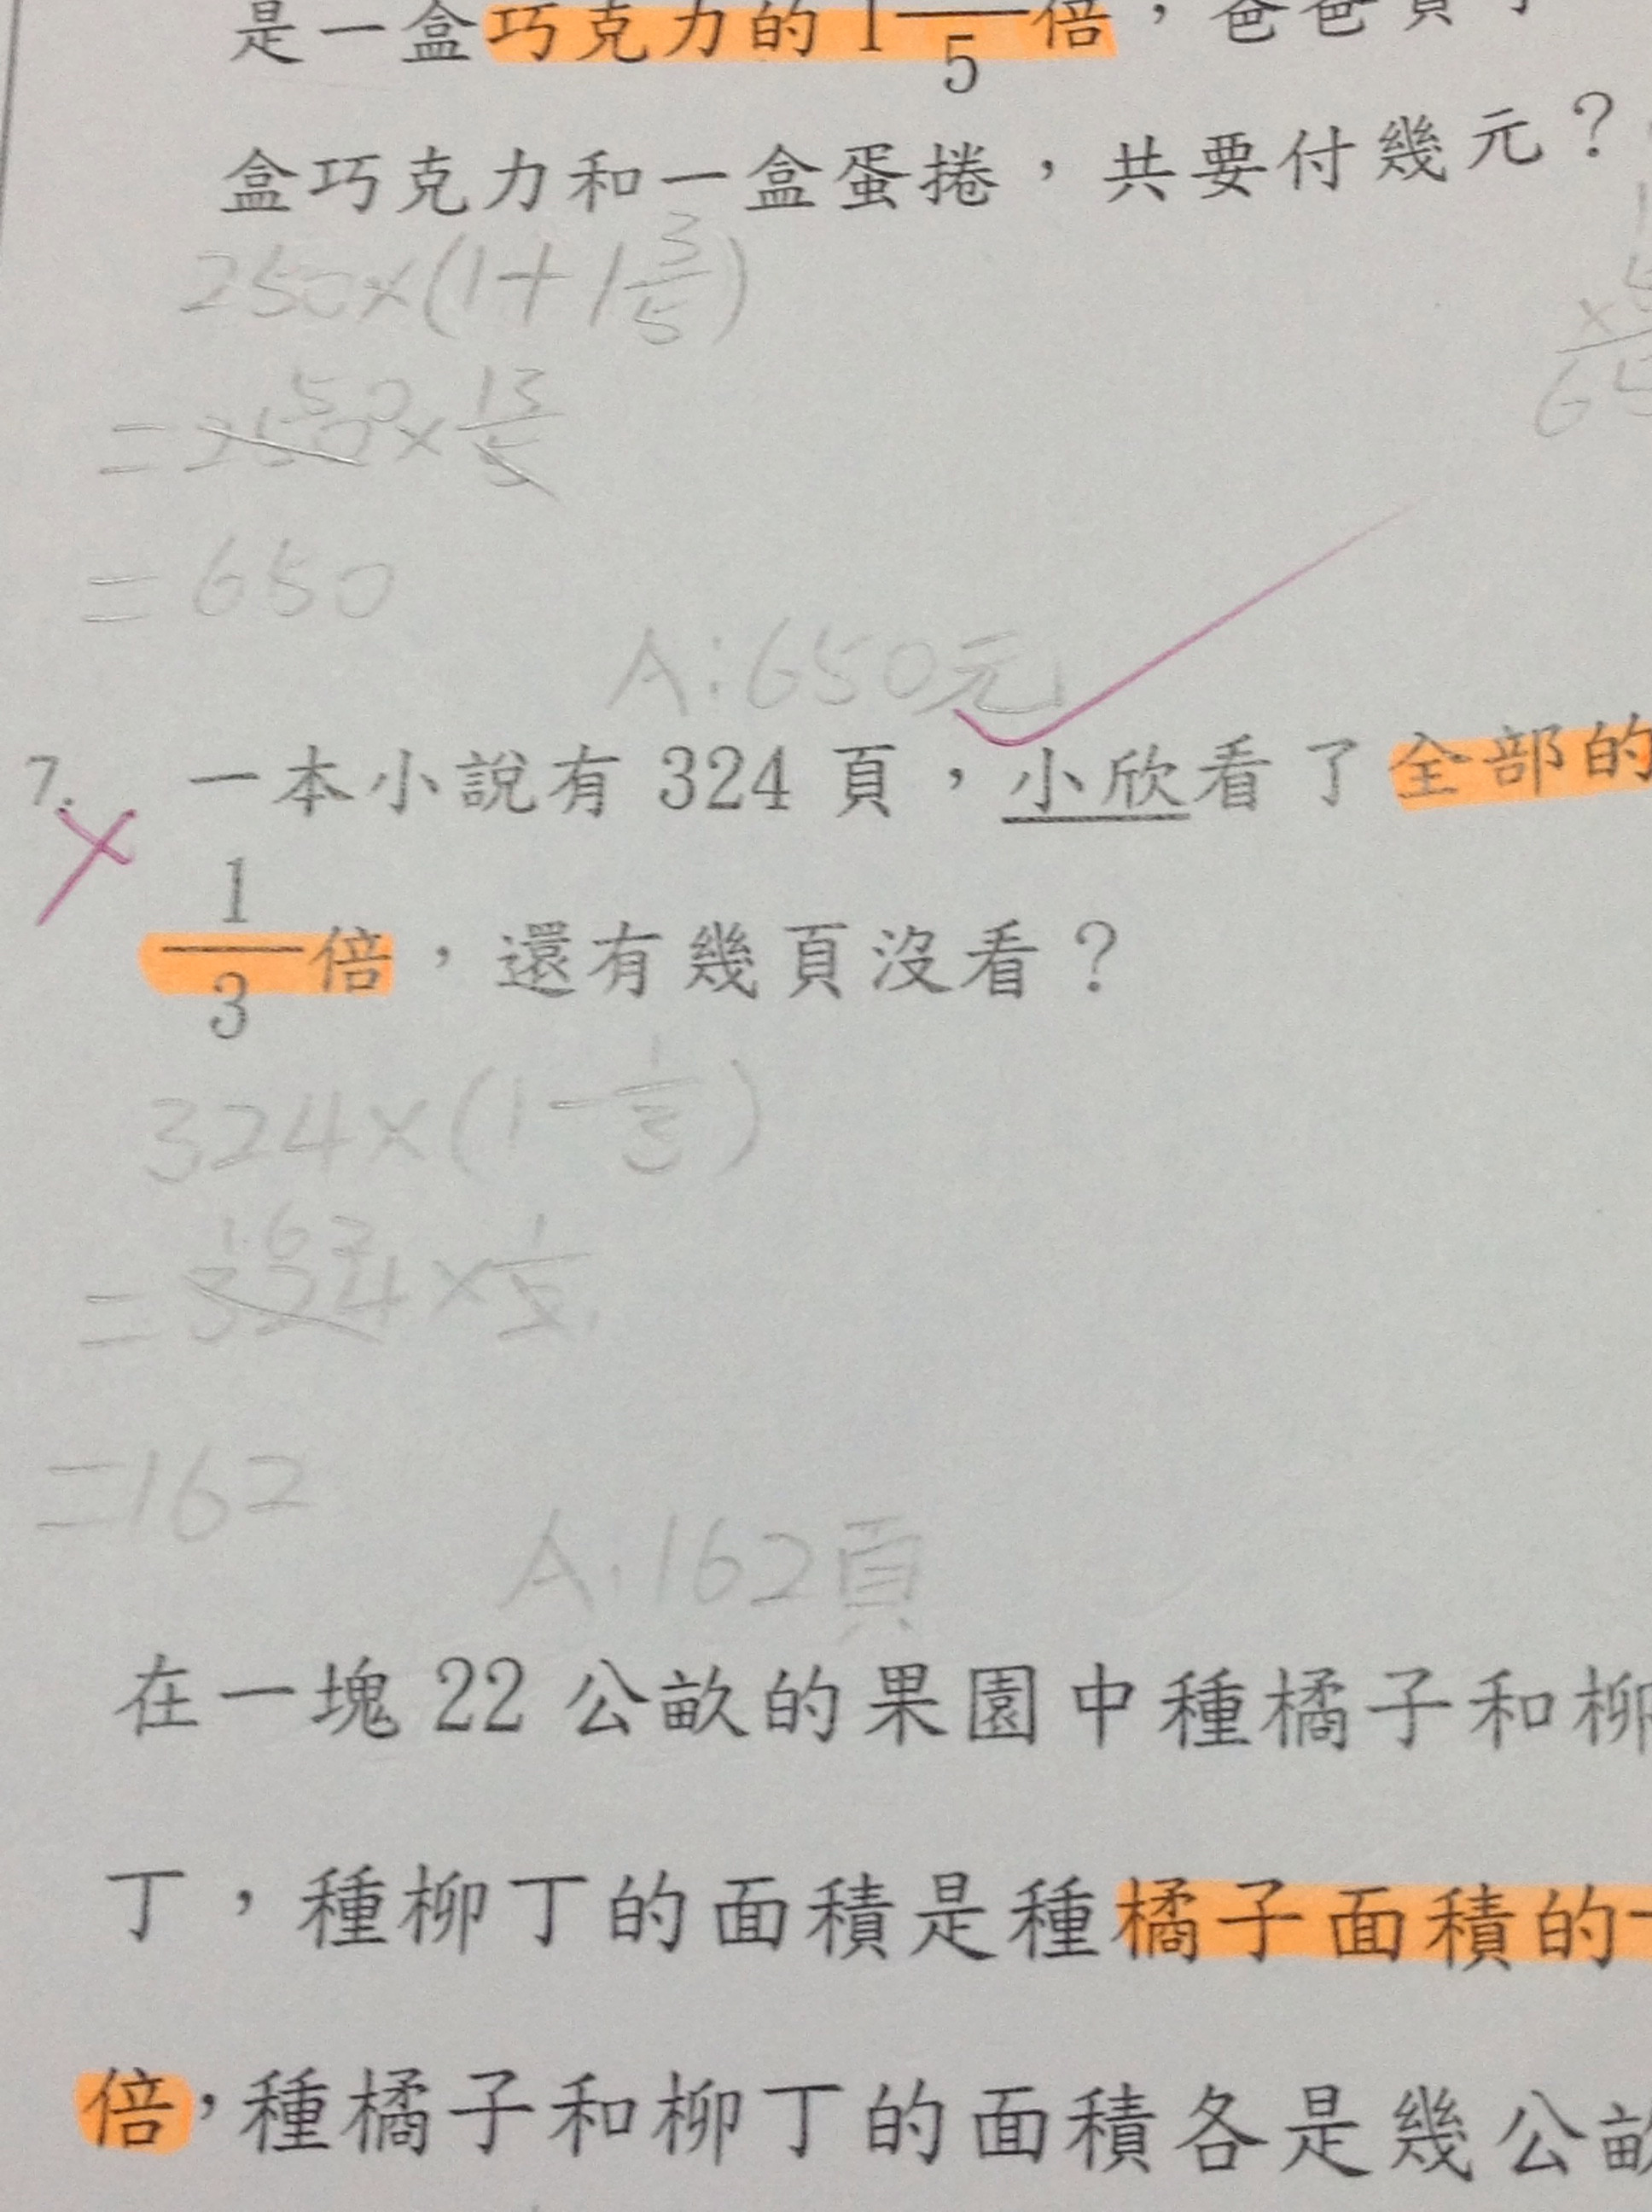 是一盒巧克力的1—/5倍,爸爸買了
盒巧克力和一盒蛋捲,共要付幾元?
250×(1+1 3/5)
=250×13/5
50
=650
A:650元
7. 一本小說有 324 頁,小欣看了全部的
1/3倍,還有幾頁沒看?
324×(1-1/3)
162
=324×1/2
1
=162
A:162頁
在一塊 22 公畝的果園中種橘子和柳
丁,種柳丁的面積是種橘子面積的
倍,種橘子和柳丁的面積各是幾公畝